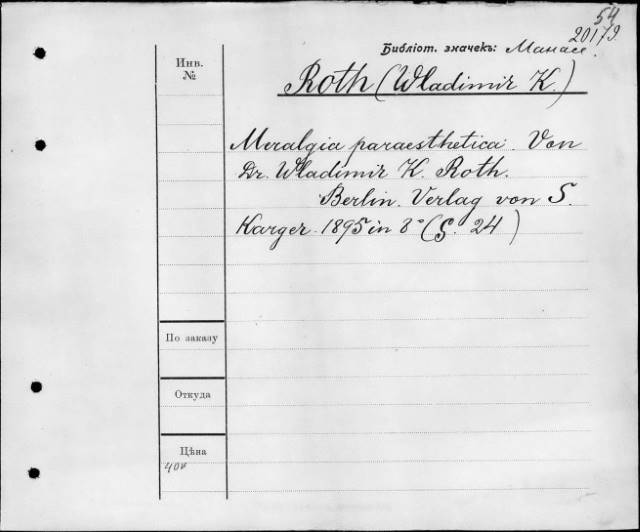 54
20179
Библіот. значекъ: Манасс.
Инв.
№
Roth (Wladimir K.)
Meralgia paraesthetica. Von
Dr. Wladimir K. Roth.
Berlin. Verlag von S.
Karger. 1895 in 8° (S. 24)
По заказу
Откуда
Цѣна
40к